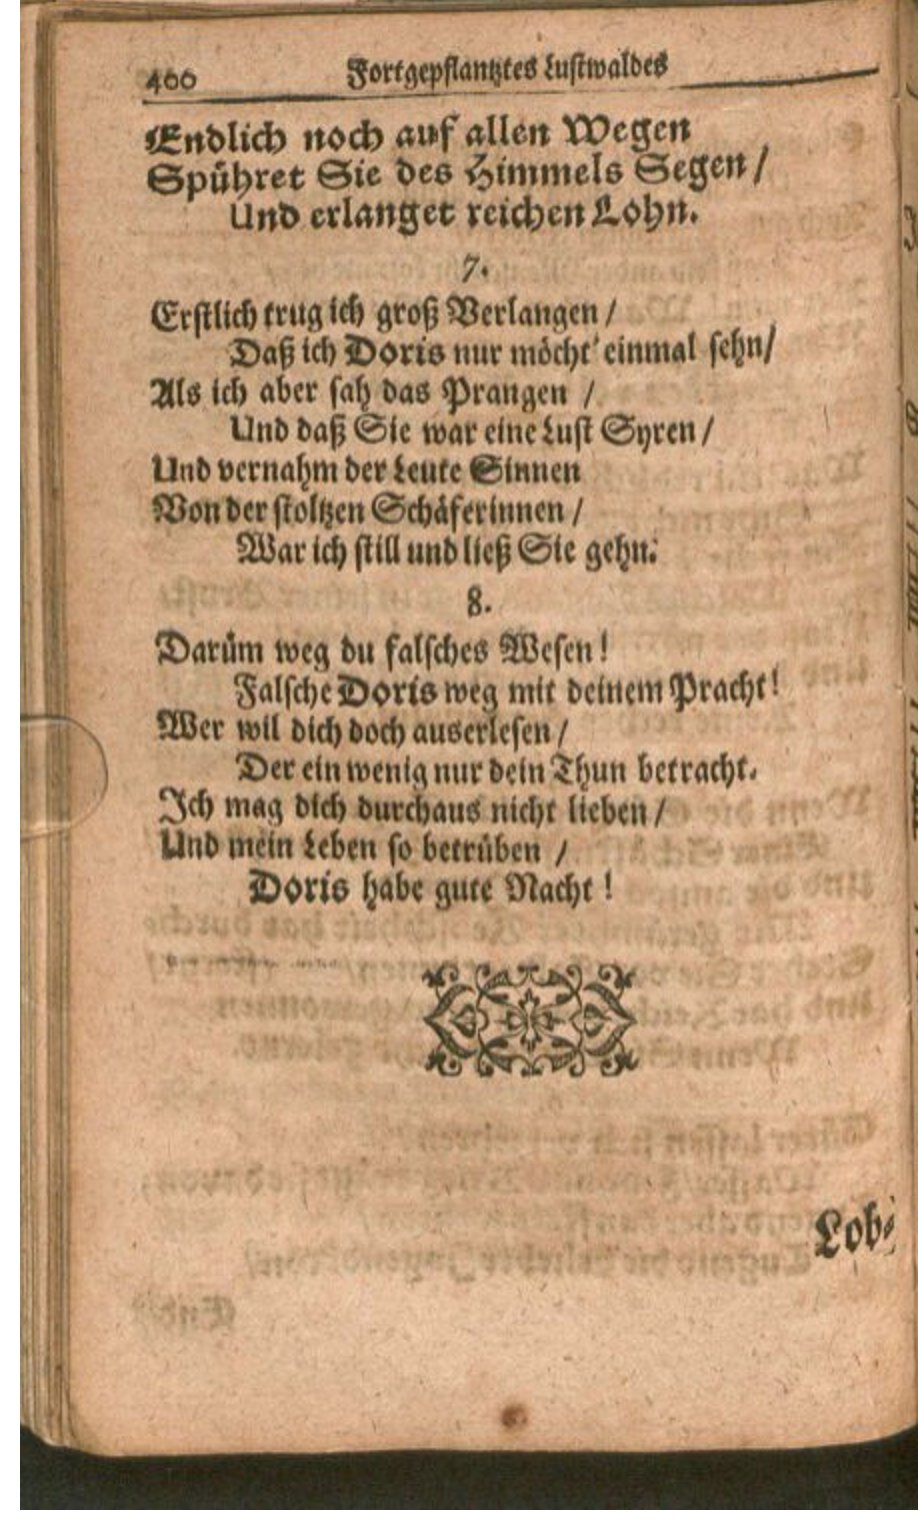 400 Fortgepflantztes Lustwaldes
Endlich noch auf allen Wegen
Spühret Sie des Himmels Segen /
Und erlanget reichen Lohn.
7.
Erstlich trug ich groß Verlangen /
Daß ich Doris nur möcht' einmal sehn/
Als ich aber sah das Prangen /
Und daß Sie war eine Lust Syren /
Und vernahm der Leute Sinnen
Von der stoltzen Schäferinnen /
War ich still und ließ Sie gehn.
8.
Darüm weg du falsches Wesen!
Falsche Doris weg mit deinem Pracht!
Wer wil dich doch auserlesen /
Der ein wenig nur dein Thun betracht.
Ich mag dich durchaus nicht lieben /
Und mein Leben so betrüben /
Doris habe gute Nacht!
Lob-